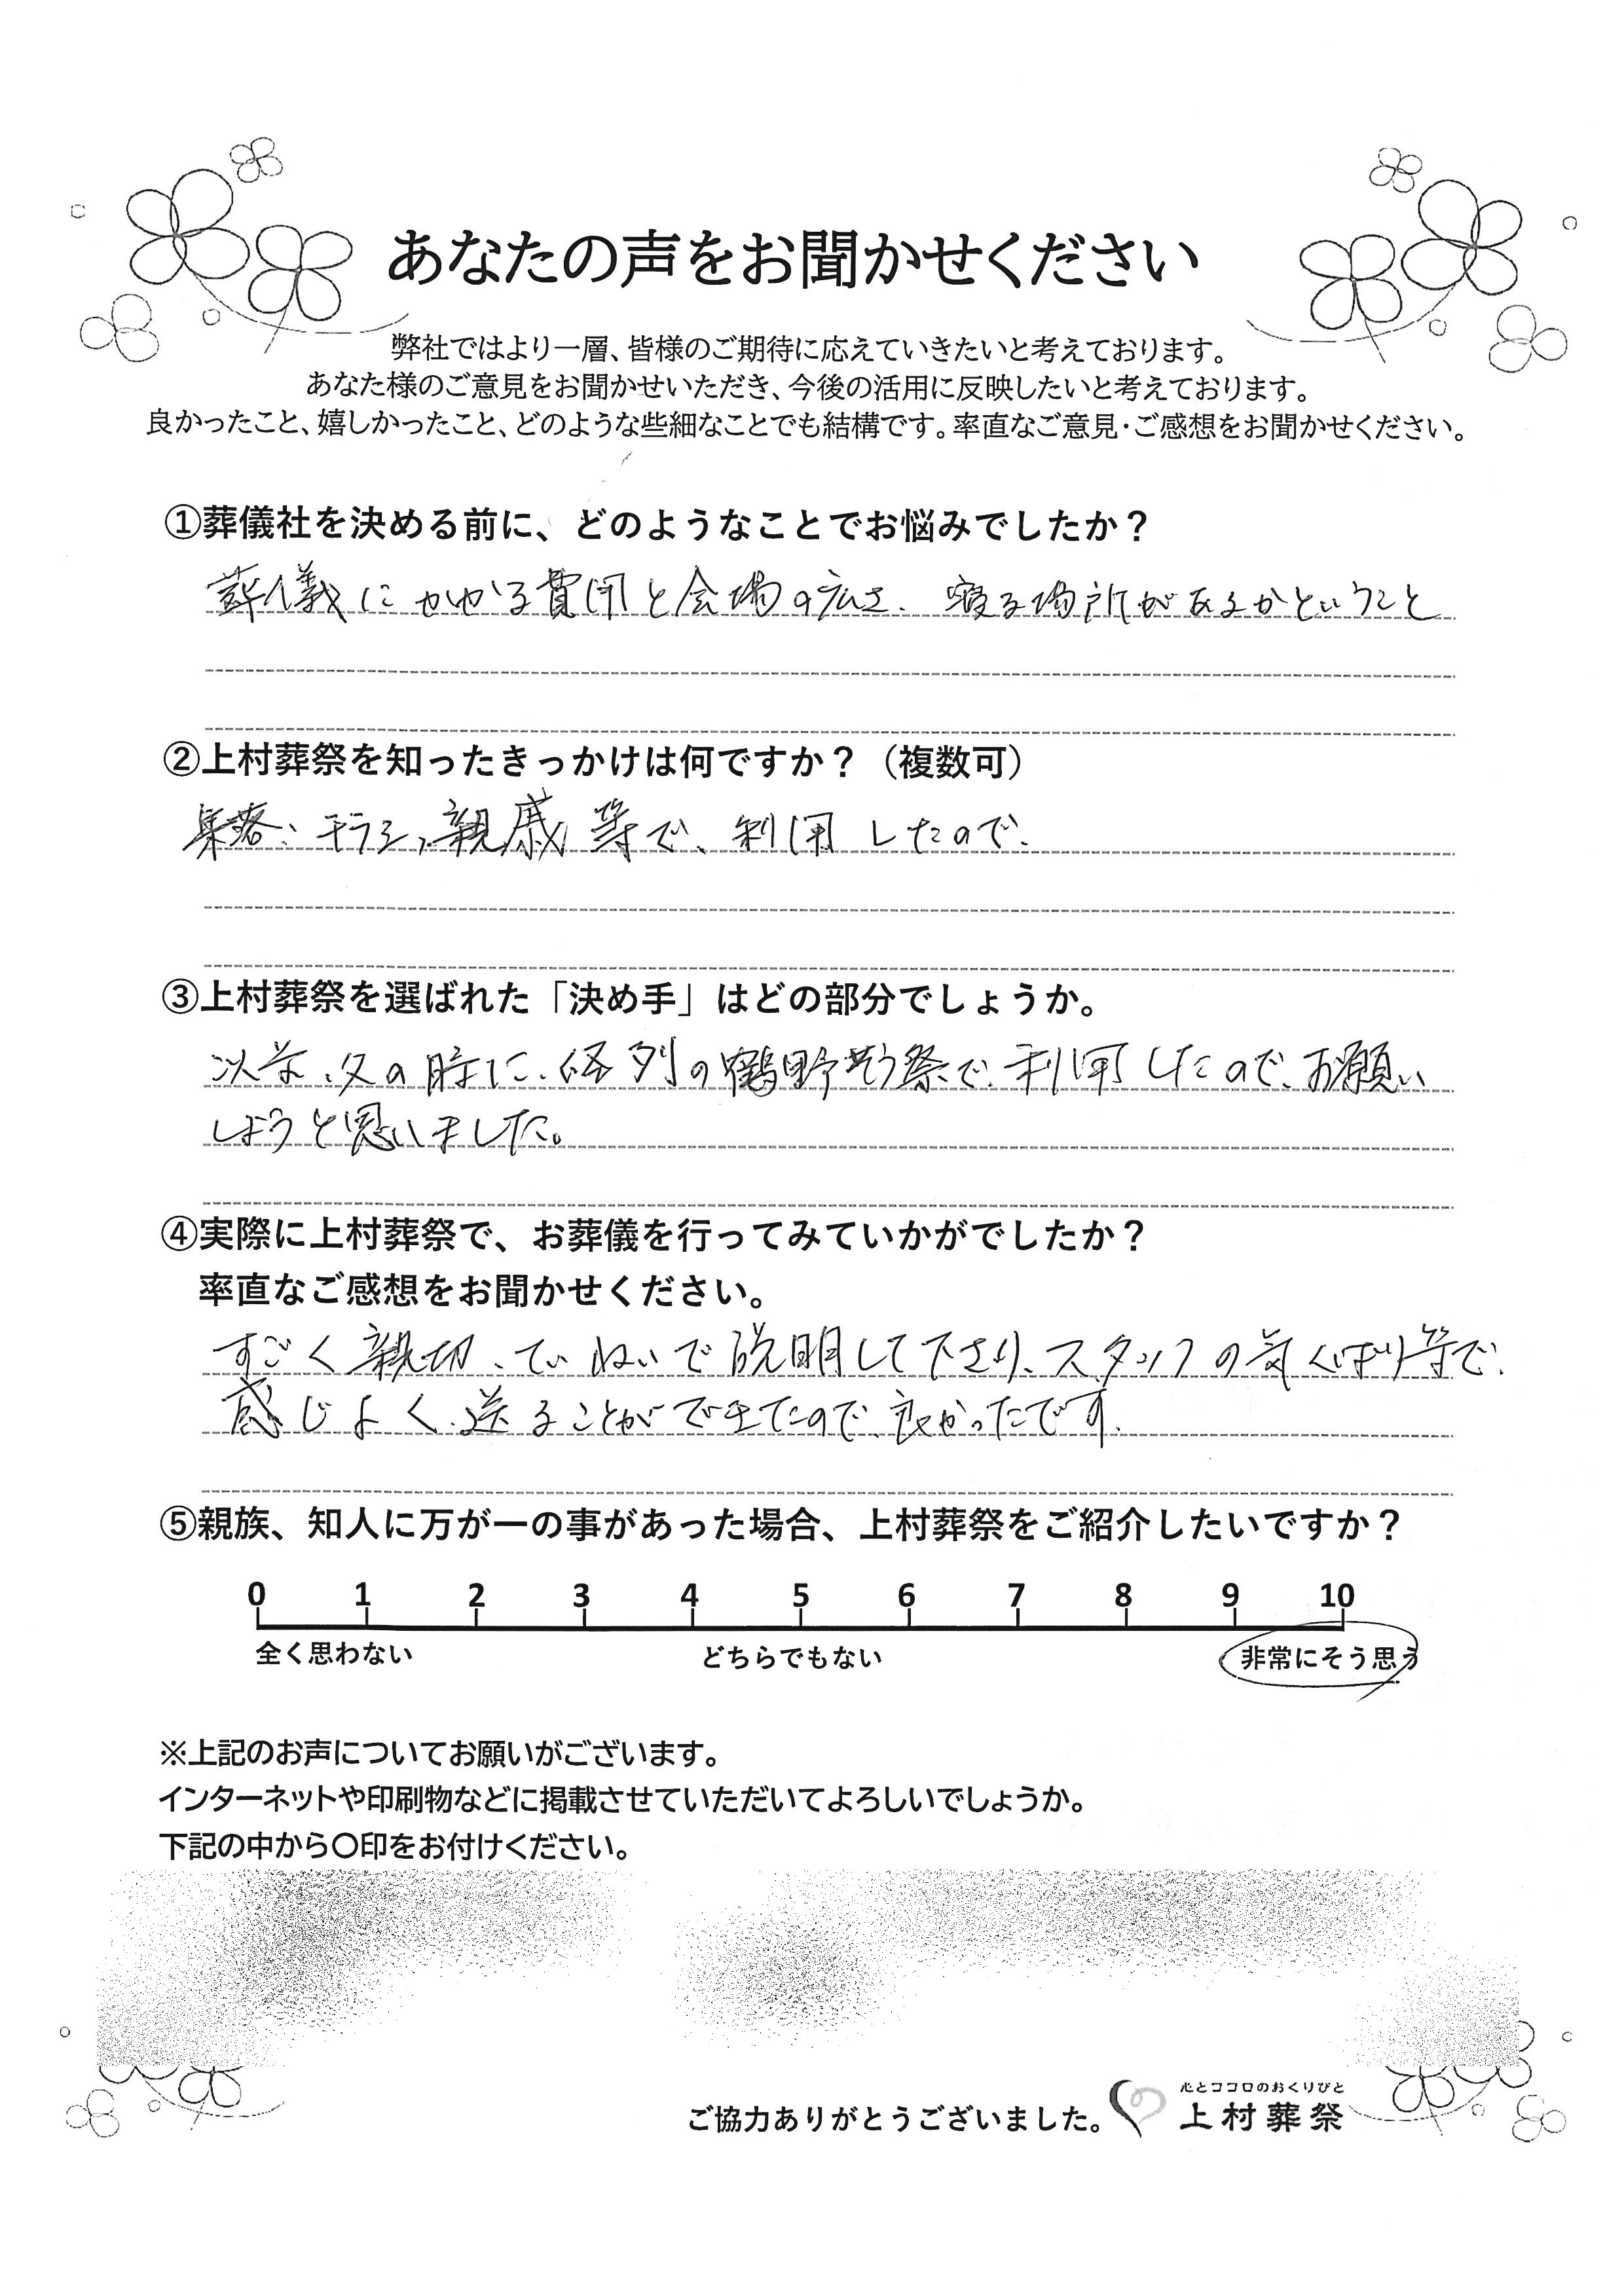 あなたの声をお聞かせください
弊社ではより一層、皆様のご期待に応えていきたいと考えております。
あなた様のご意見をお聞かせいただき、今後の活用に反映したいと考えております。
良かったこと、嬉しかったこと、どのような些細なことでも結構です。率直なご意見・ご感想をお聞かせください。
①葬儀社を決める前に、どのようなことでお悩みでしたか？
葬儀にかかる費用と会場の広さ、寝る場所があるかということ
②上村葬祭を知ったきっかけは何ですか？（複数可）
集落、チラシ、親戚等で、利用したので、
③上村葬祭を選ばれた「決め手」はどの部分でしょうか。
以前、父の時に、系列の鶴野葬祭で、利用したので、お願い
しようと思いました。
④実際に上村葬祭で、お葬儀を行ってみていかがでしたか？
率直なご感想をお聞かせください。
すごく親切、ていねいで説明して下さり、スタッフの気くばり等で、
感じよく、送ることができたので、良かったです。
⑤親族、知人に万が一の事があった場合、上村葬祭をご紹介したいですか？
0 1 2 3 4 5 6 7 8 9 10
全く思わない どちらでもない 非常にそう思う
※上記のお声についてお願いがございます。
インターネットや印刷物などに掲載させていただいてよろしいでしょうか。
下記の中から〇印をお付けください。
心とココロのおくりびと
ご協力ありがとうございました。 上村葬祭